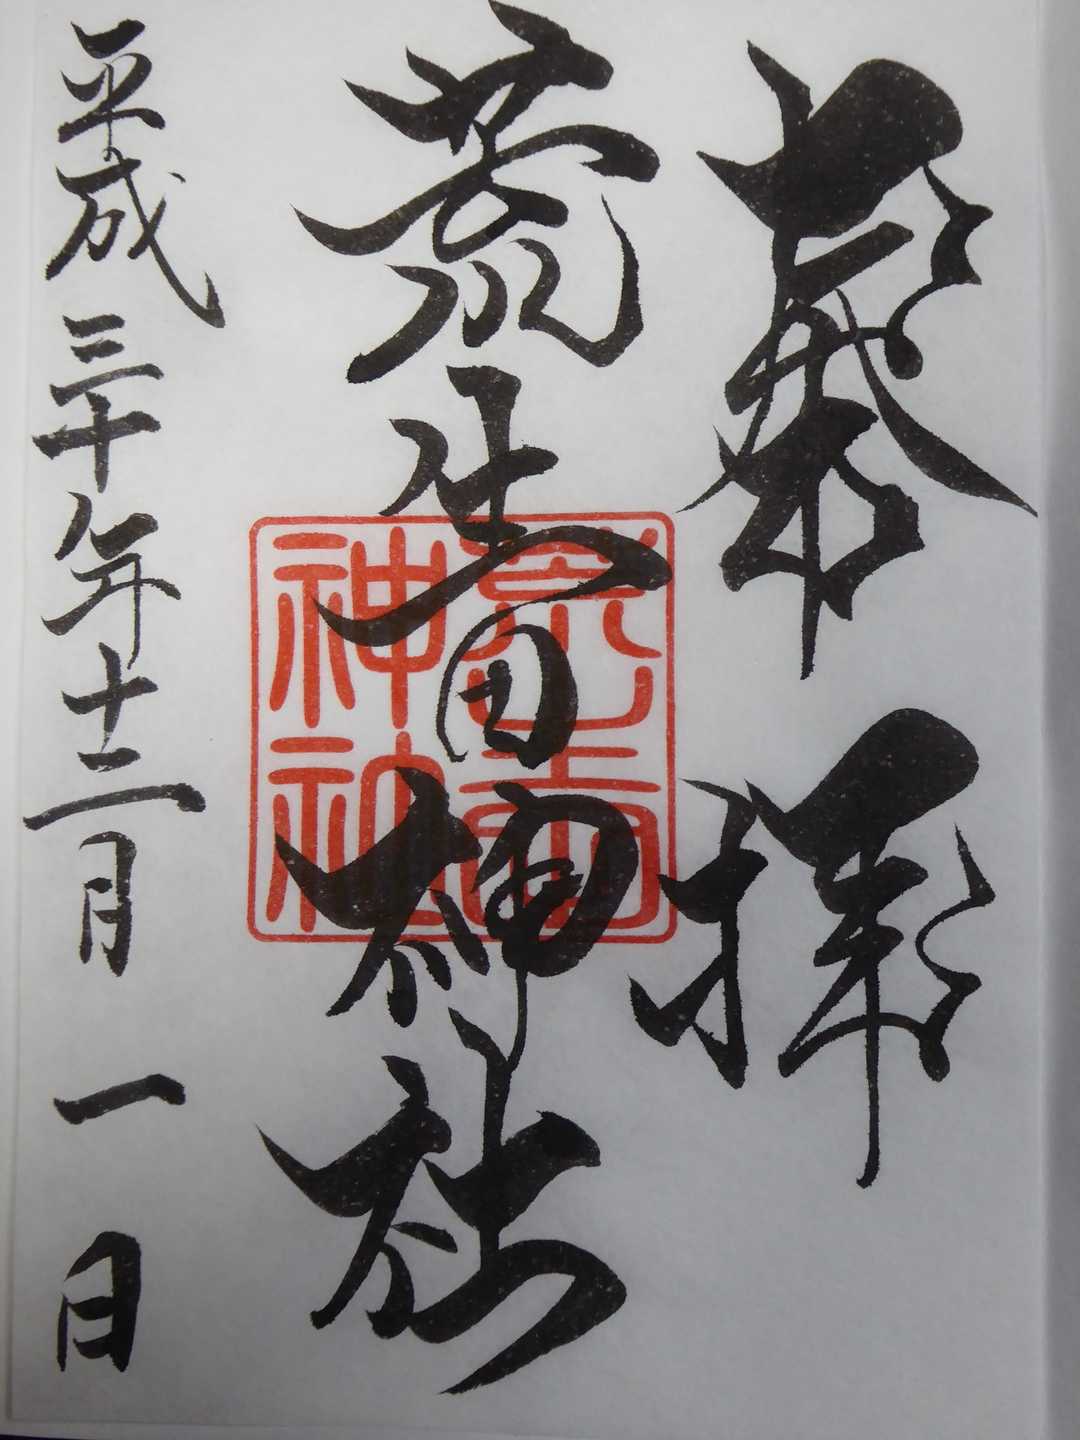 奉拝
荒生田神社
平成三十年十二月一日
神社